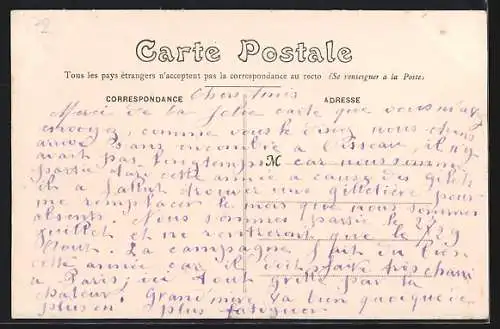 2
Carte Postale
Tous les pays étrangers n'acceptent pas la correspondance au recto (Se renseigner à la Poste)
CORRESPONDANCE ADRESSE
Chers Amis
Merci de la jolie carte que vous m'avez
envoyez, comme vous le nous
arrivé sans encombre a il n'y
avait pas longtemps M car nous sommes
partie tard cette année a cause des gilets
il a fallut trouver une giletière pour
me remplacer le mois que nous sommes
absents. Nous sommes partie le 2
juillet et ne rentreront que le 29
Aout. La campagne fait du bien
cette année car il doit faire très chaud
a Paris; ici tout grille par la
chaleur. Grand mère va bien quoique
plus en plus fatiguer